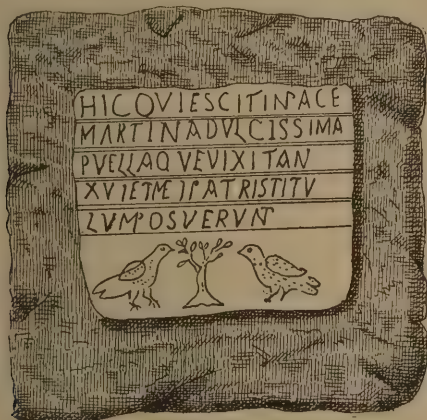 HIC QVIESCIT IN PACE
MARTINA DVLCISSIMA
PVELLA QVE VIXIT AN
XVI ET ME II PATRIS TITV
LVM POSVERVNT